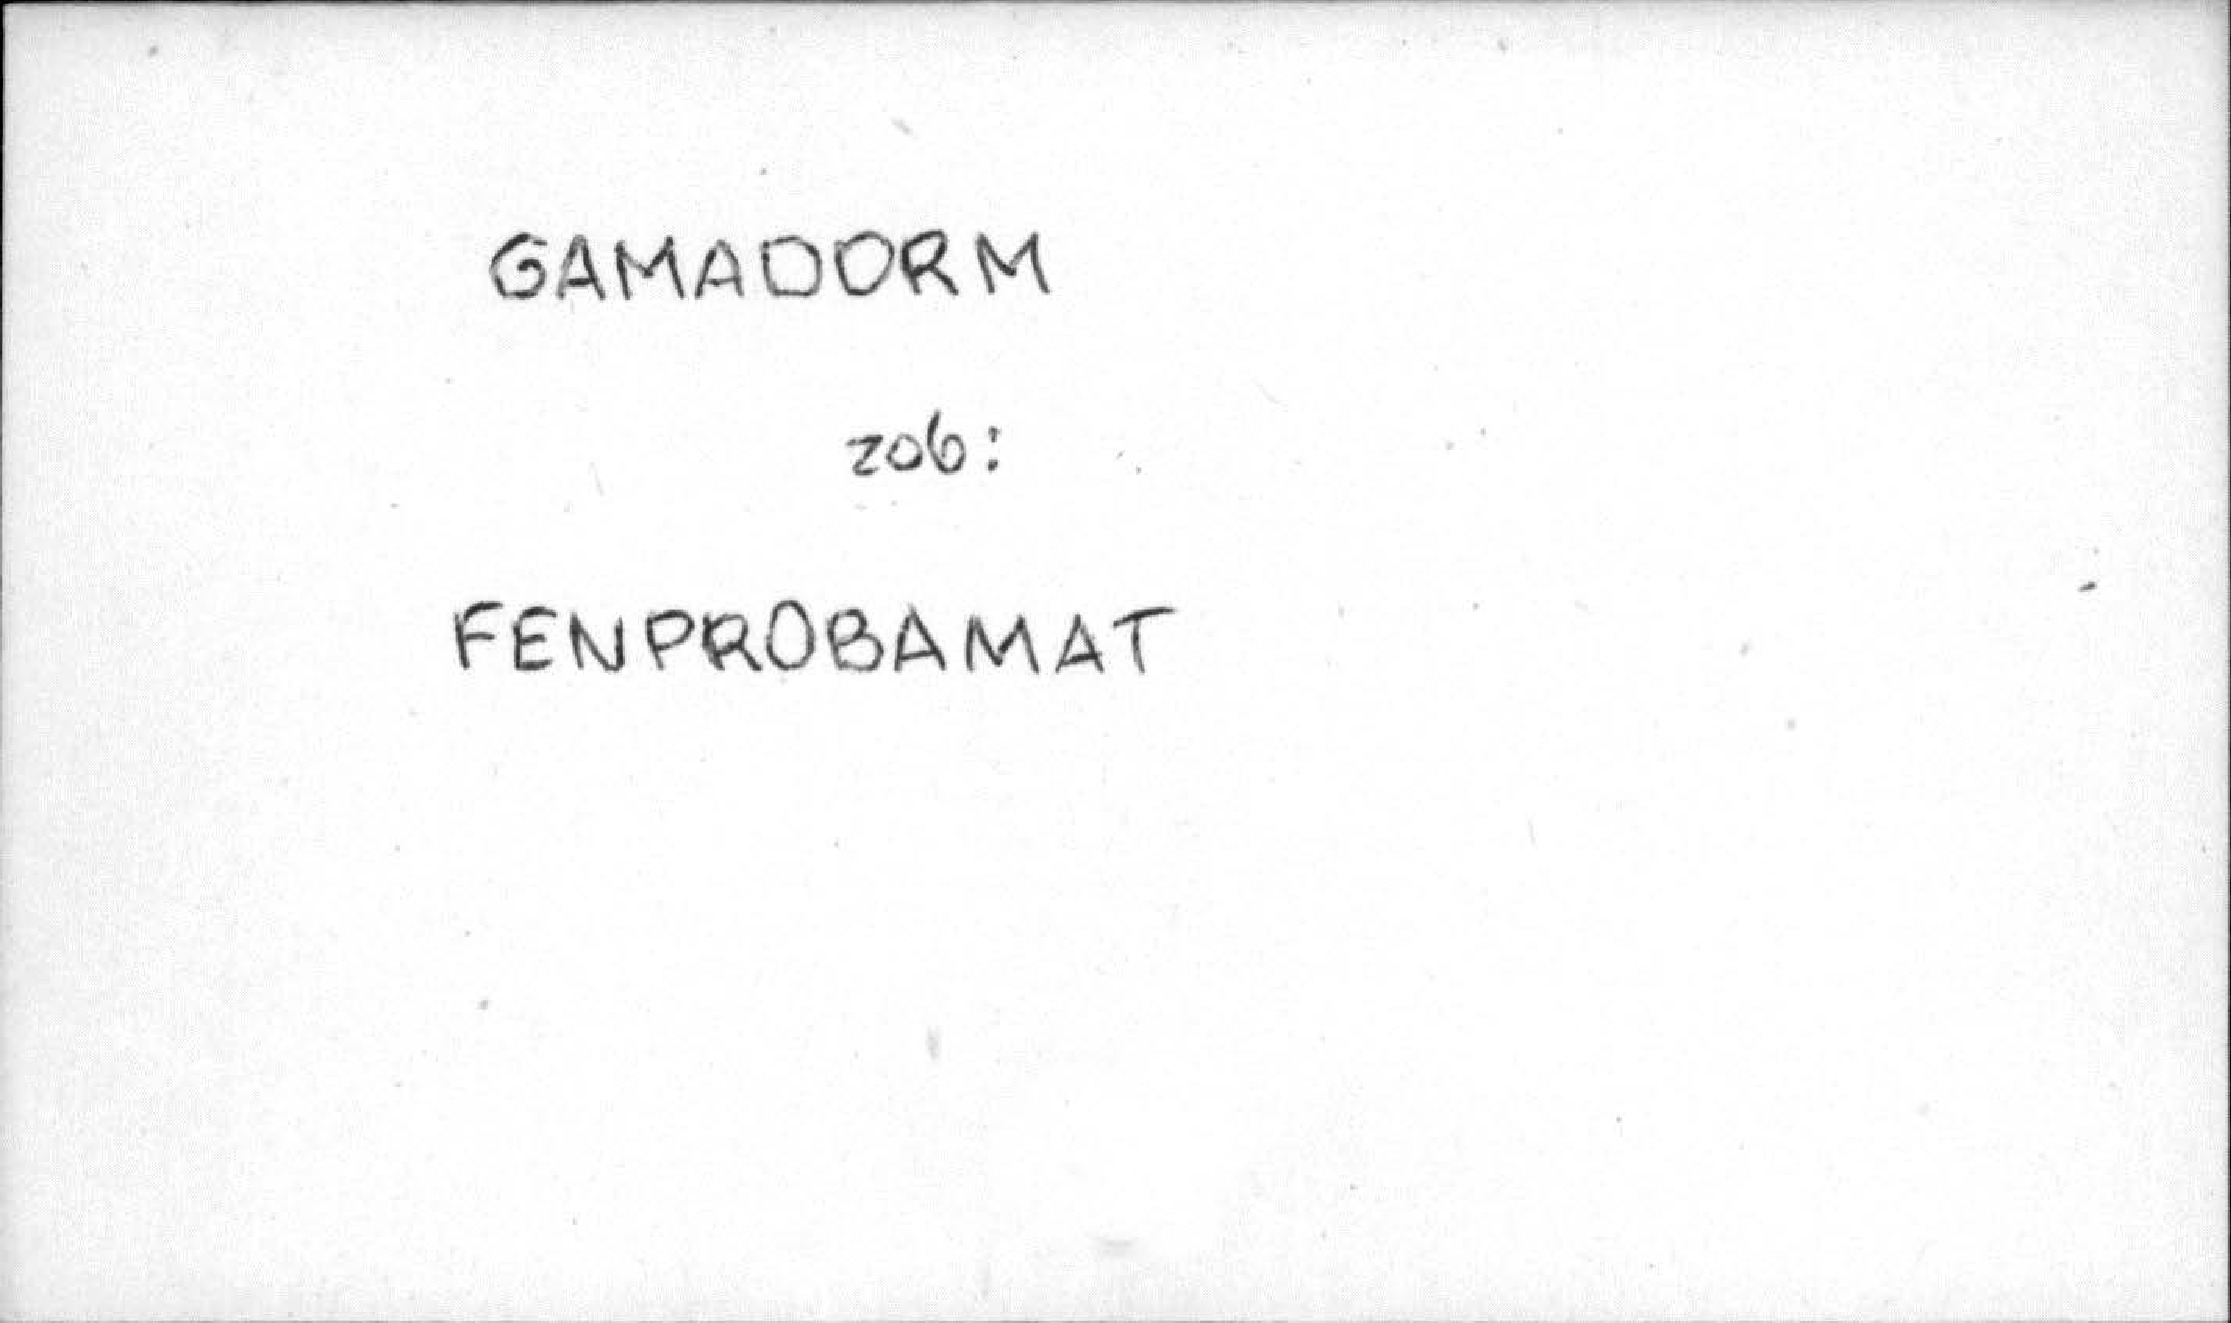 GAMADORM
zob:
FENPROBAMAT